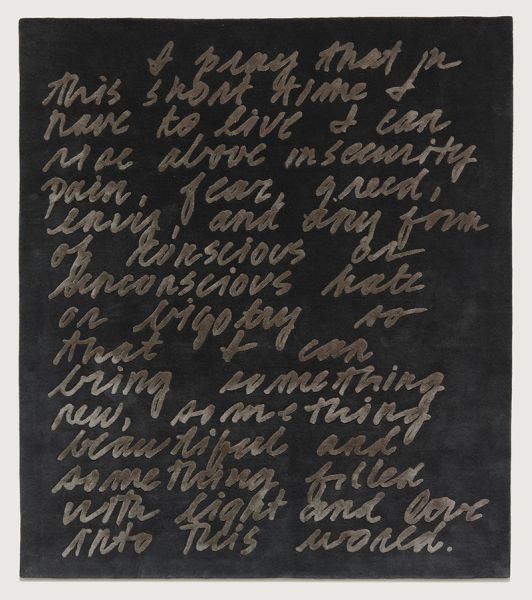 I pray that in
this short time I
have to live I can
rise above insecurity
pain, fear, greed,
envy, and any form
of conscious or
unconscious hate
or bigotry so
that I can
bring something
new, something
beautiful and
something filled
with light and love
into this world.